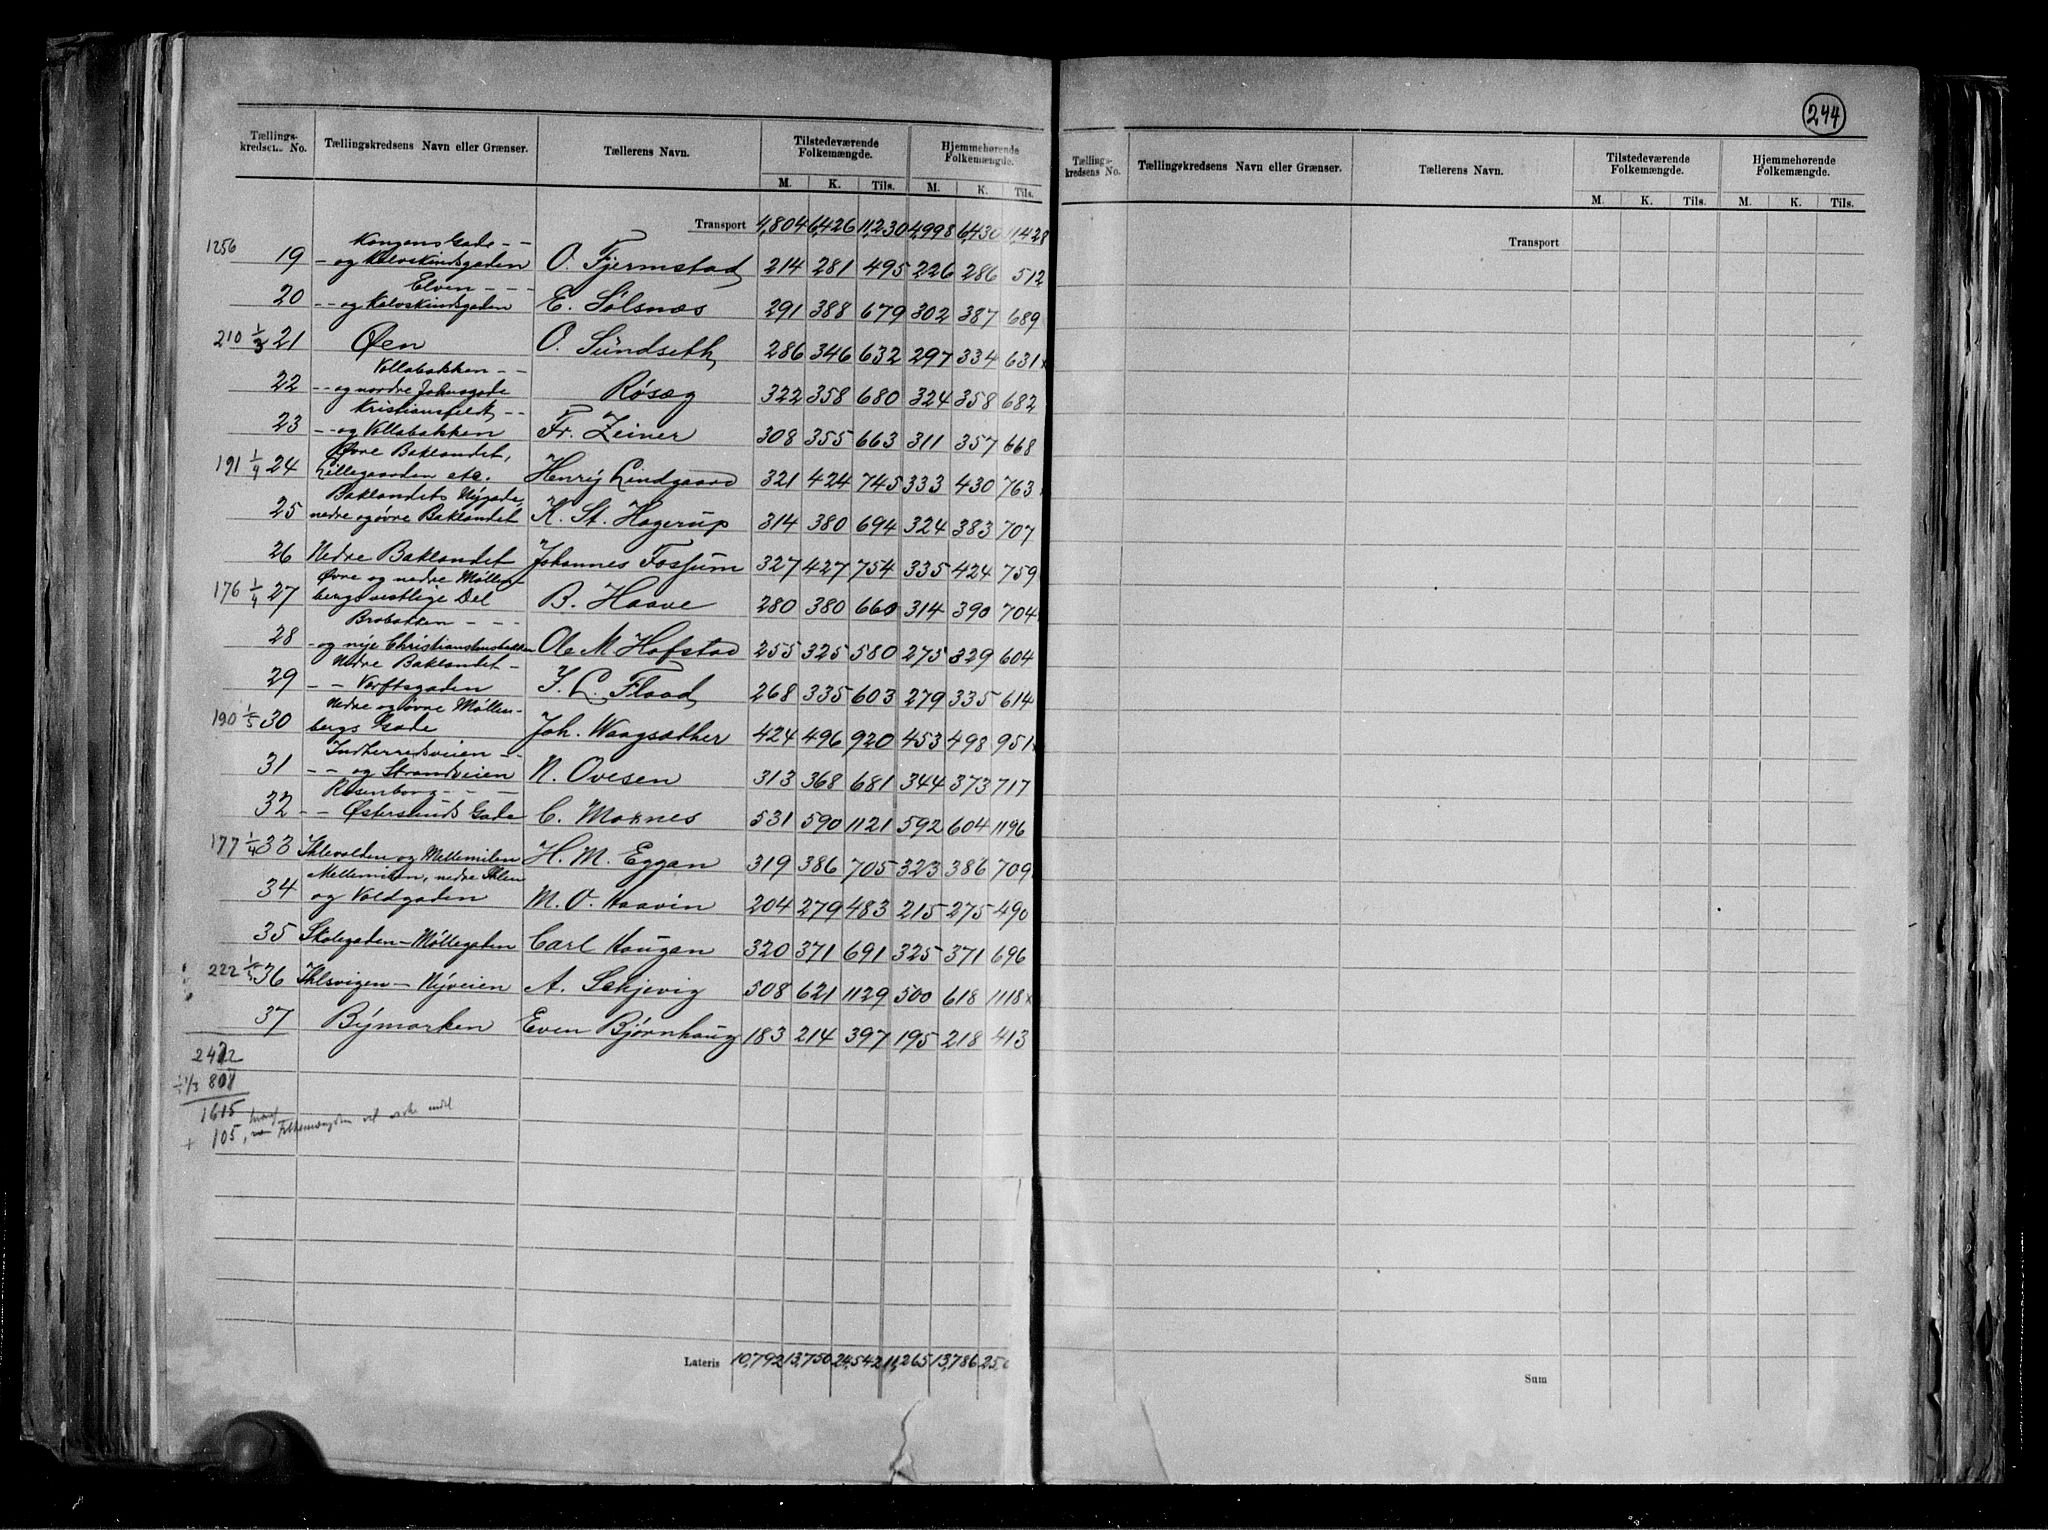 244
Tællings- kredsens No. Tællingskredsens Navn eller Grænser. Tællerens Navn. Tilstedeværende Folkemængde. Hjemmehørende Folkemængde.
M. K. Tils. M. K. Tils.
Transport 4,804 6,426 11,230 4,998 6,430 11,428
Kongens Gade - -
1256 19 - og Kalvskindsgaden O. Fjermstad 214 281 495 226 286 512
Elven - - -
20 - - og Kalvskindsgaden E. Sølsnæs 291 388 679 302 387 689
210 1/3 21 Øen O. Sundseth 286 346 632 297 334 631
Vollabakken - -
22 - - og nordre Johnsgade Røsæg 322 358 680 324 358 682
Kristiansfeldt - -
23 - - og Vollabakken Fr. Zeiner 308 355 663 311 357 668
Øvre Baklandet,
191 1/4 24 Lillegaarden etc. Henry Lindgaard 321 424 745 333 430 763
Baklandets Nygade,
25 nedre og øvre Baklandet K. St. Hagerup 314 380 694 324 383 707
26 Nedre Baklandet Johannes Fossum 327 427 754 335 424 759
Øvre og nedre Møllen-
176 1/4 27 bergs vestlige Del B. Haave 280 380 660 314 390 704
Brobakken - - -
28 - og nye Christianstensbakken Ole M Hofstad 255 325 580 275 329 604
Nedre Baklandet -
29 - - Værftsgaden I. L. Flaad 268 335 603 279 335 614
Nedre og øvre Møllen-
190 1/5 30 bergs Gade Joh. Waagsæther 424 496 920 453 498 951
Indherredsveien - -
31 - - og Strandveien N. Ovesen 313 368 681 344 373 717
Rosenborg - - -
32 - - Østersunds Gade C. Moknes 531 590 1121 592 604 1196
177 1/4 33 Ihlevolden og Mellemilen H. M. Eggan 319 386 705 323 386 709
Mellemilen, nedre Ihlen
34 og Voldgaden M. O. Haavin 204 279 483 215 275 490
35 Skolegaden - Møllegaden Carl Haugan 320 371 691 325 371 696
222 1/5 36 Ihlsvigen - Nyveien A. Schjevig 508 621 1129 500 618 1118
37 Bymarken Even Bjørnhaug 183 214 397 195 218 413
2422
÷ 1/3 808
1615
+ 105, Folkemængden
Lateris 10,792 13,750 24,542 11,265 13,786
Tællings- kredsens No. Tællingskredsens Navn eller Grænser. Tællerens Navn. Tilstedeværende Folkemængde. Hjemmehørende Folkemængde.
M. K. Tils. M. K. Tils.
Transport
Sum